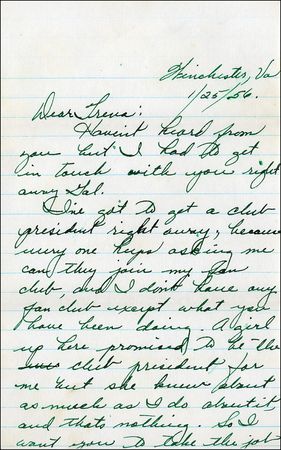 Winchester, Va
1/25/56.
Dear Treva:
Havent heard from
you but I had to get
in touch with you right
away Gal.
I've got to get a club
president right away, because
every one keeps asking me
can they join my fan
club, and I dont have any
fan club except what you
have been doing. A girl
up here promised to be the
club president for
me but she knew about
as much as I do about it
and thats nothing. So I
want you to take the job